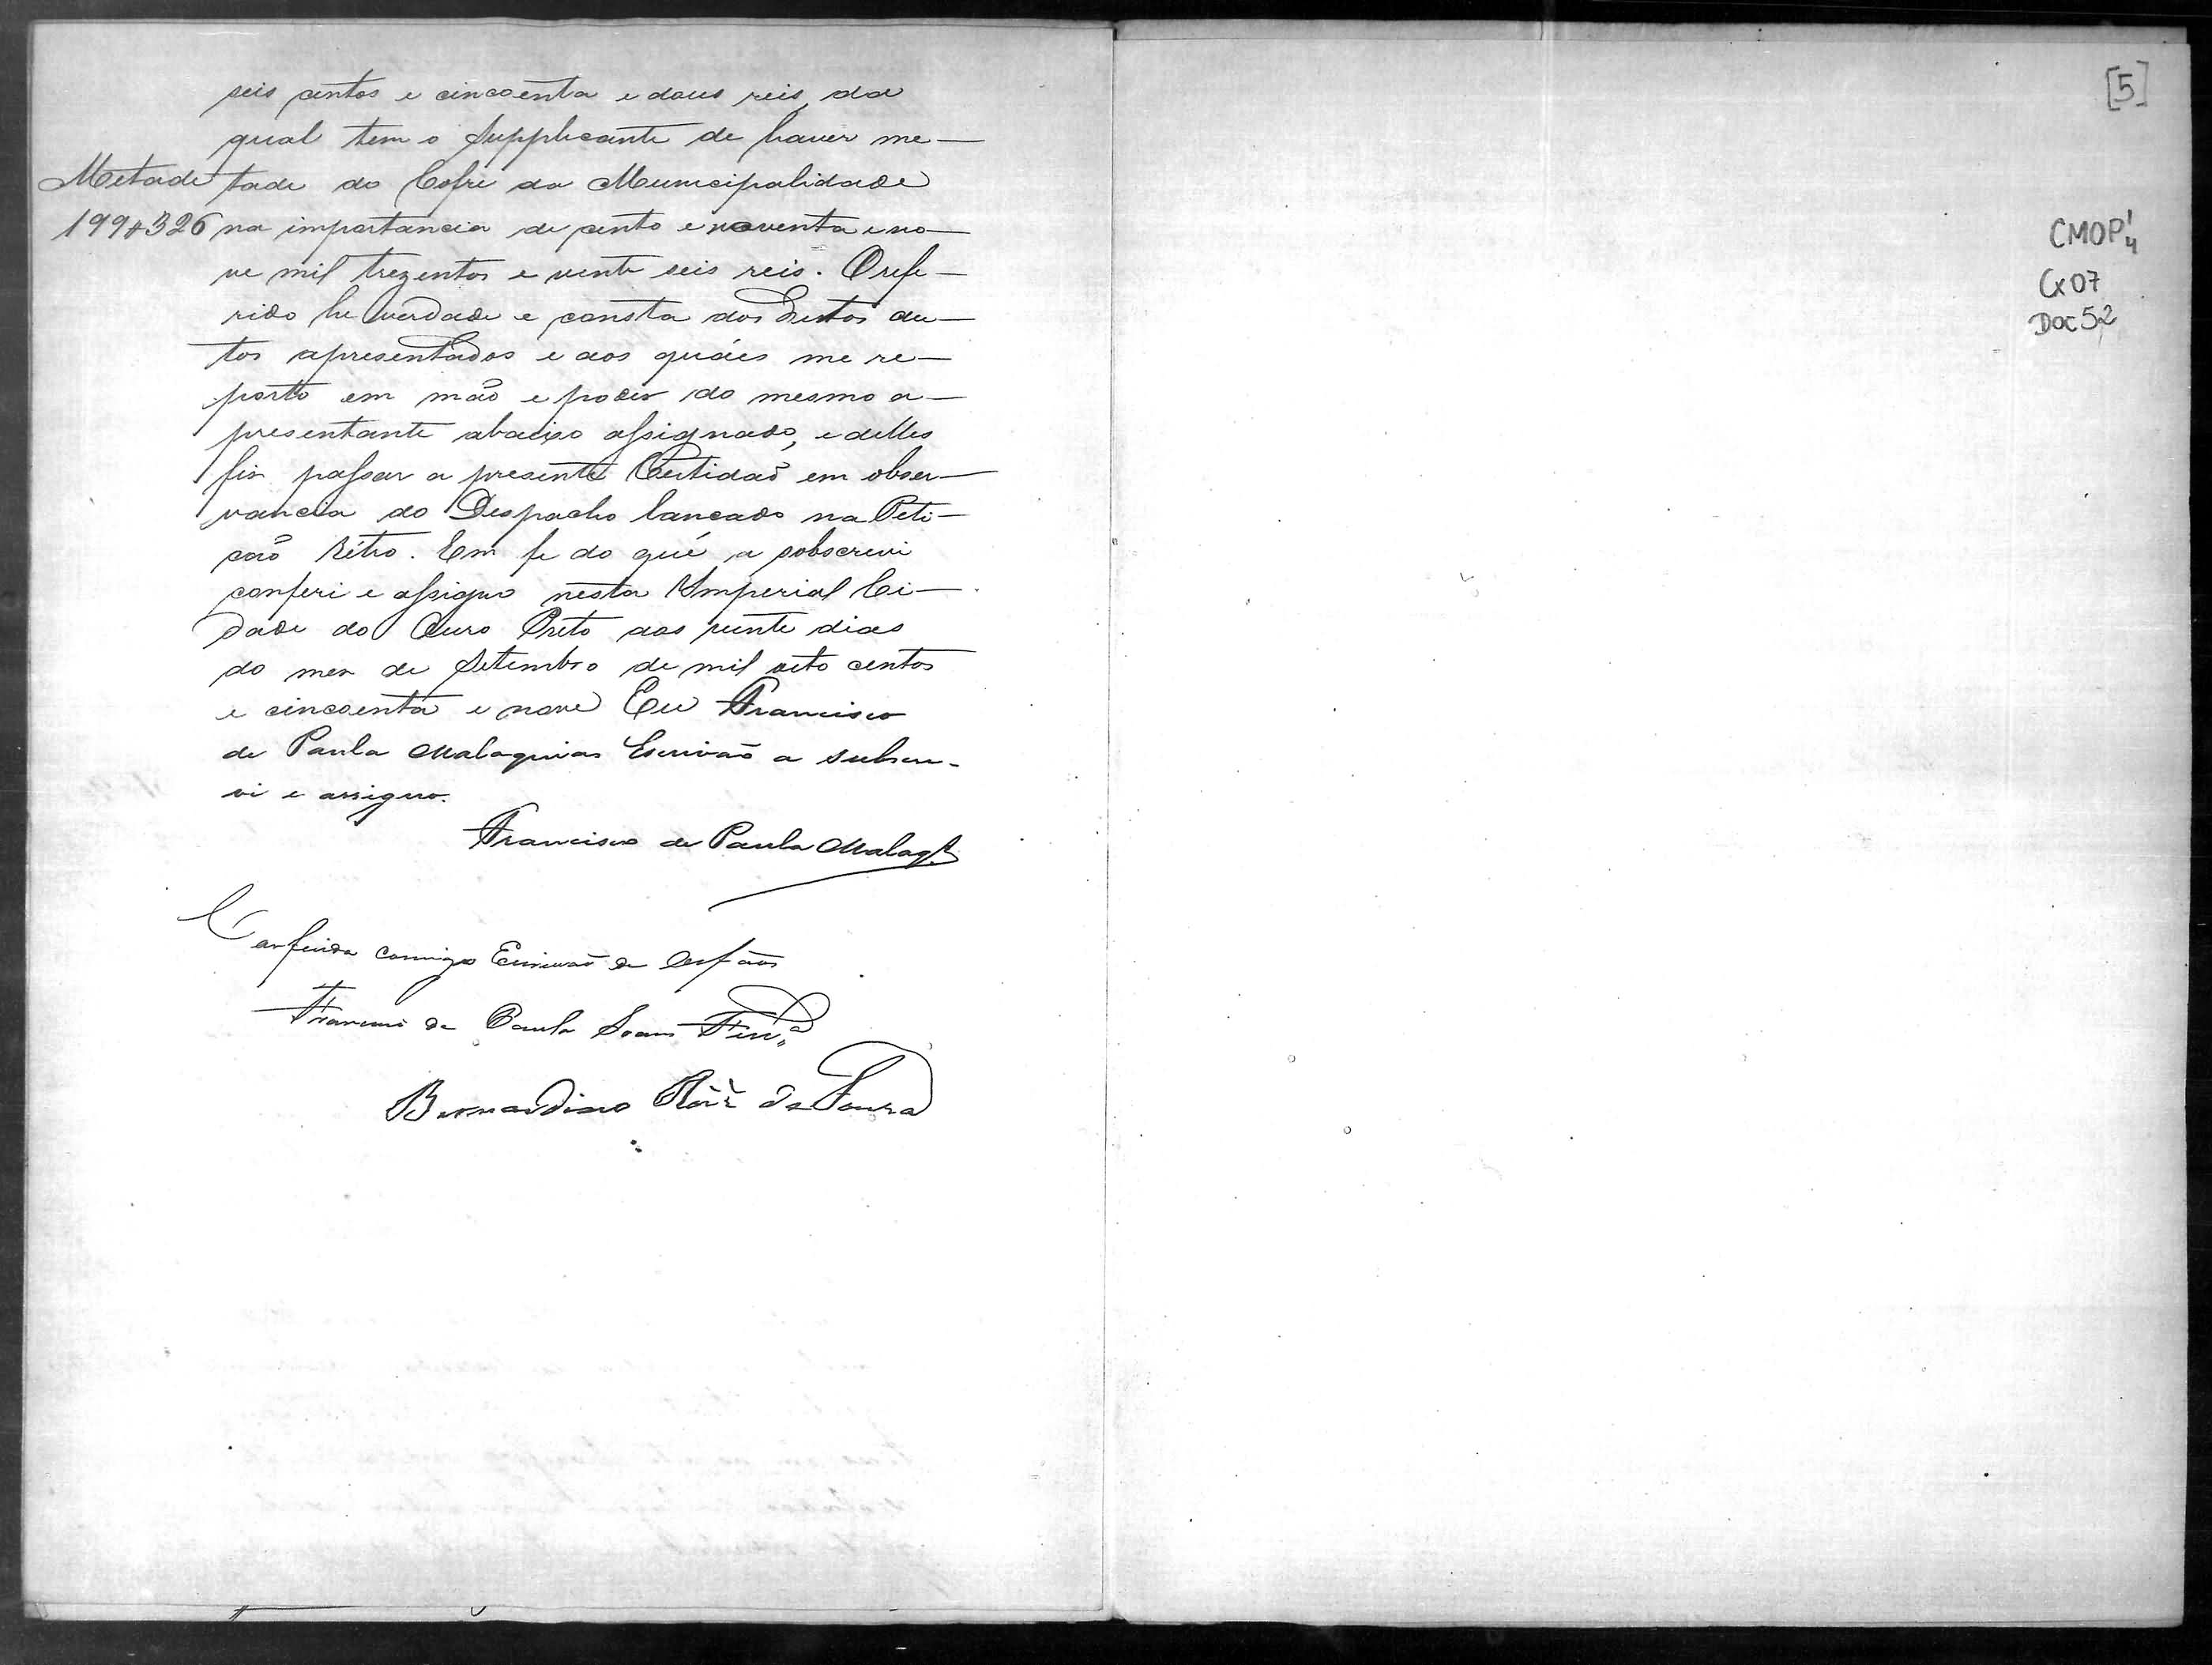 seis centos e cincoenta e dous reis, da
qual tem o Supplicante de haver me-
Metade tade do Cofre da Municipalidade
199$326 na importancia de cento e noventa e no-
ve mil trezentos e vente seis reis. O refe-
rido he verdade e consta dos Dictos au-
tos apresentados e aos quáes me re-
porto em mão e poder do mesmo a-
presentante abaixo assignado, e delles
fis passar a presente Certidaõ em obser-
vancia do Despacho lancado na Peti-
caõ Rétro. Em fe do qué a sobscrevi
conferi e assigno nesta Imperial Ci-
dade do Ouro Preto aos vente dias
do mes de Setembro de mil oito centos
e cincoenta e nove Eu Francisco
de Paula Malaquias Escrivaõ a subscre-
vi e assigno.
Francisco de Paula Malaqs
Conferida comigo Escrivaõ de Orfaõs
Francisco de Paula Soares Ferrª
Bernardino Roiz de Souza
[5]
CMOP
Cx 07
Doc 52